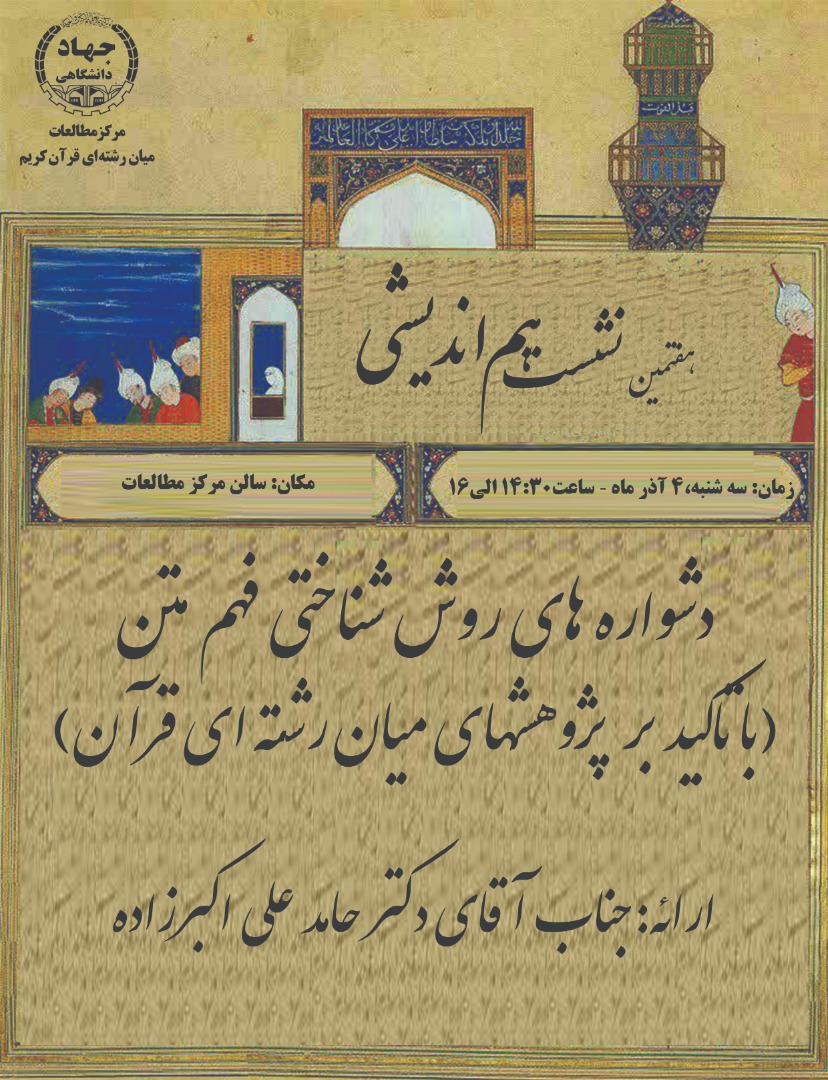 جهاد
دانشگاهی
مرکز مطالعات
میان رشته‌ای قرآن کریم
هفتمین نشست هم اندیشی
زمان: سه شنبه، ۴ آذر ماه - ساعت ۱۴:۳۰ الی ۱۶
مکان: سالن مرکز مطالعات
دشواره های روش شناختی فهم متن
(با تاکید بر پژوهشهای میان رشته ای قرآن)
ارائه: جناب آقای دکتر حامد علی اکبرزاده